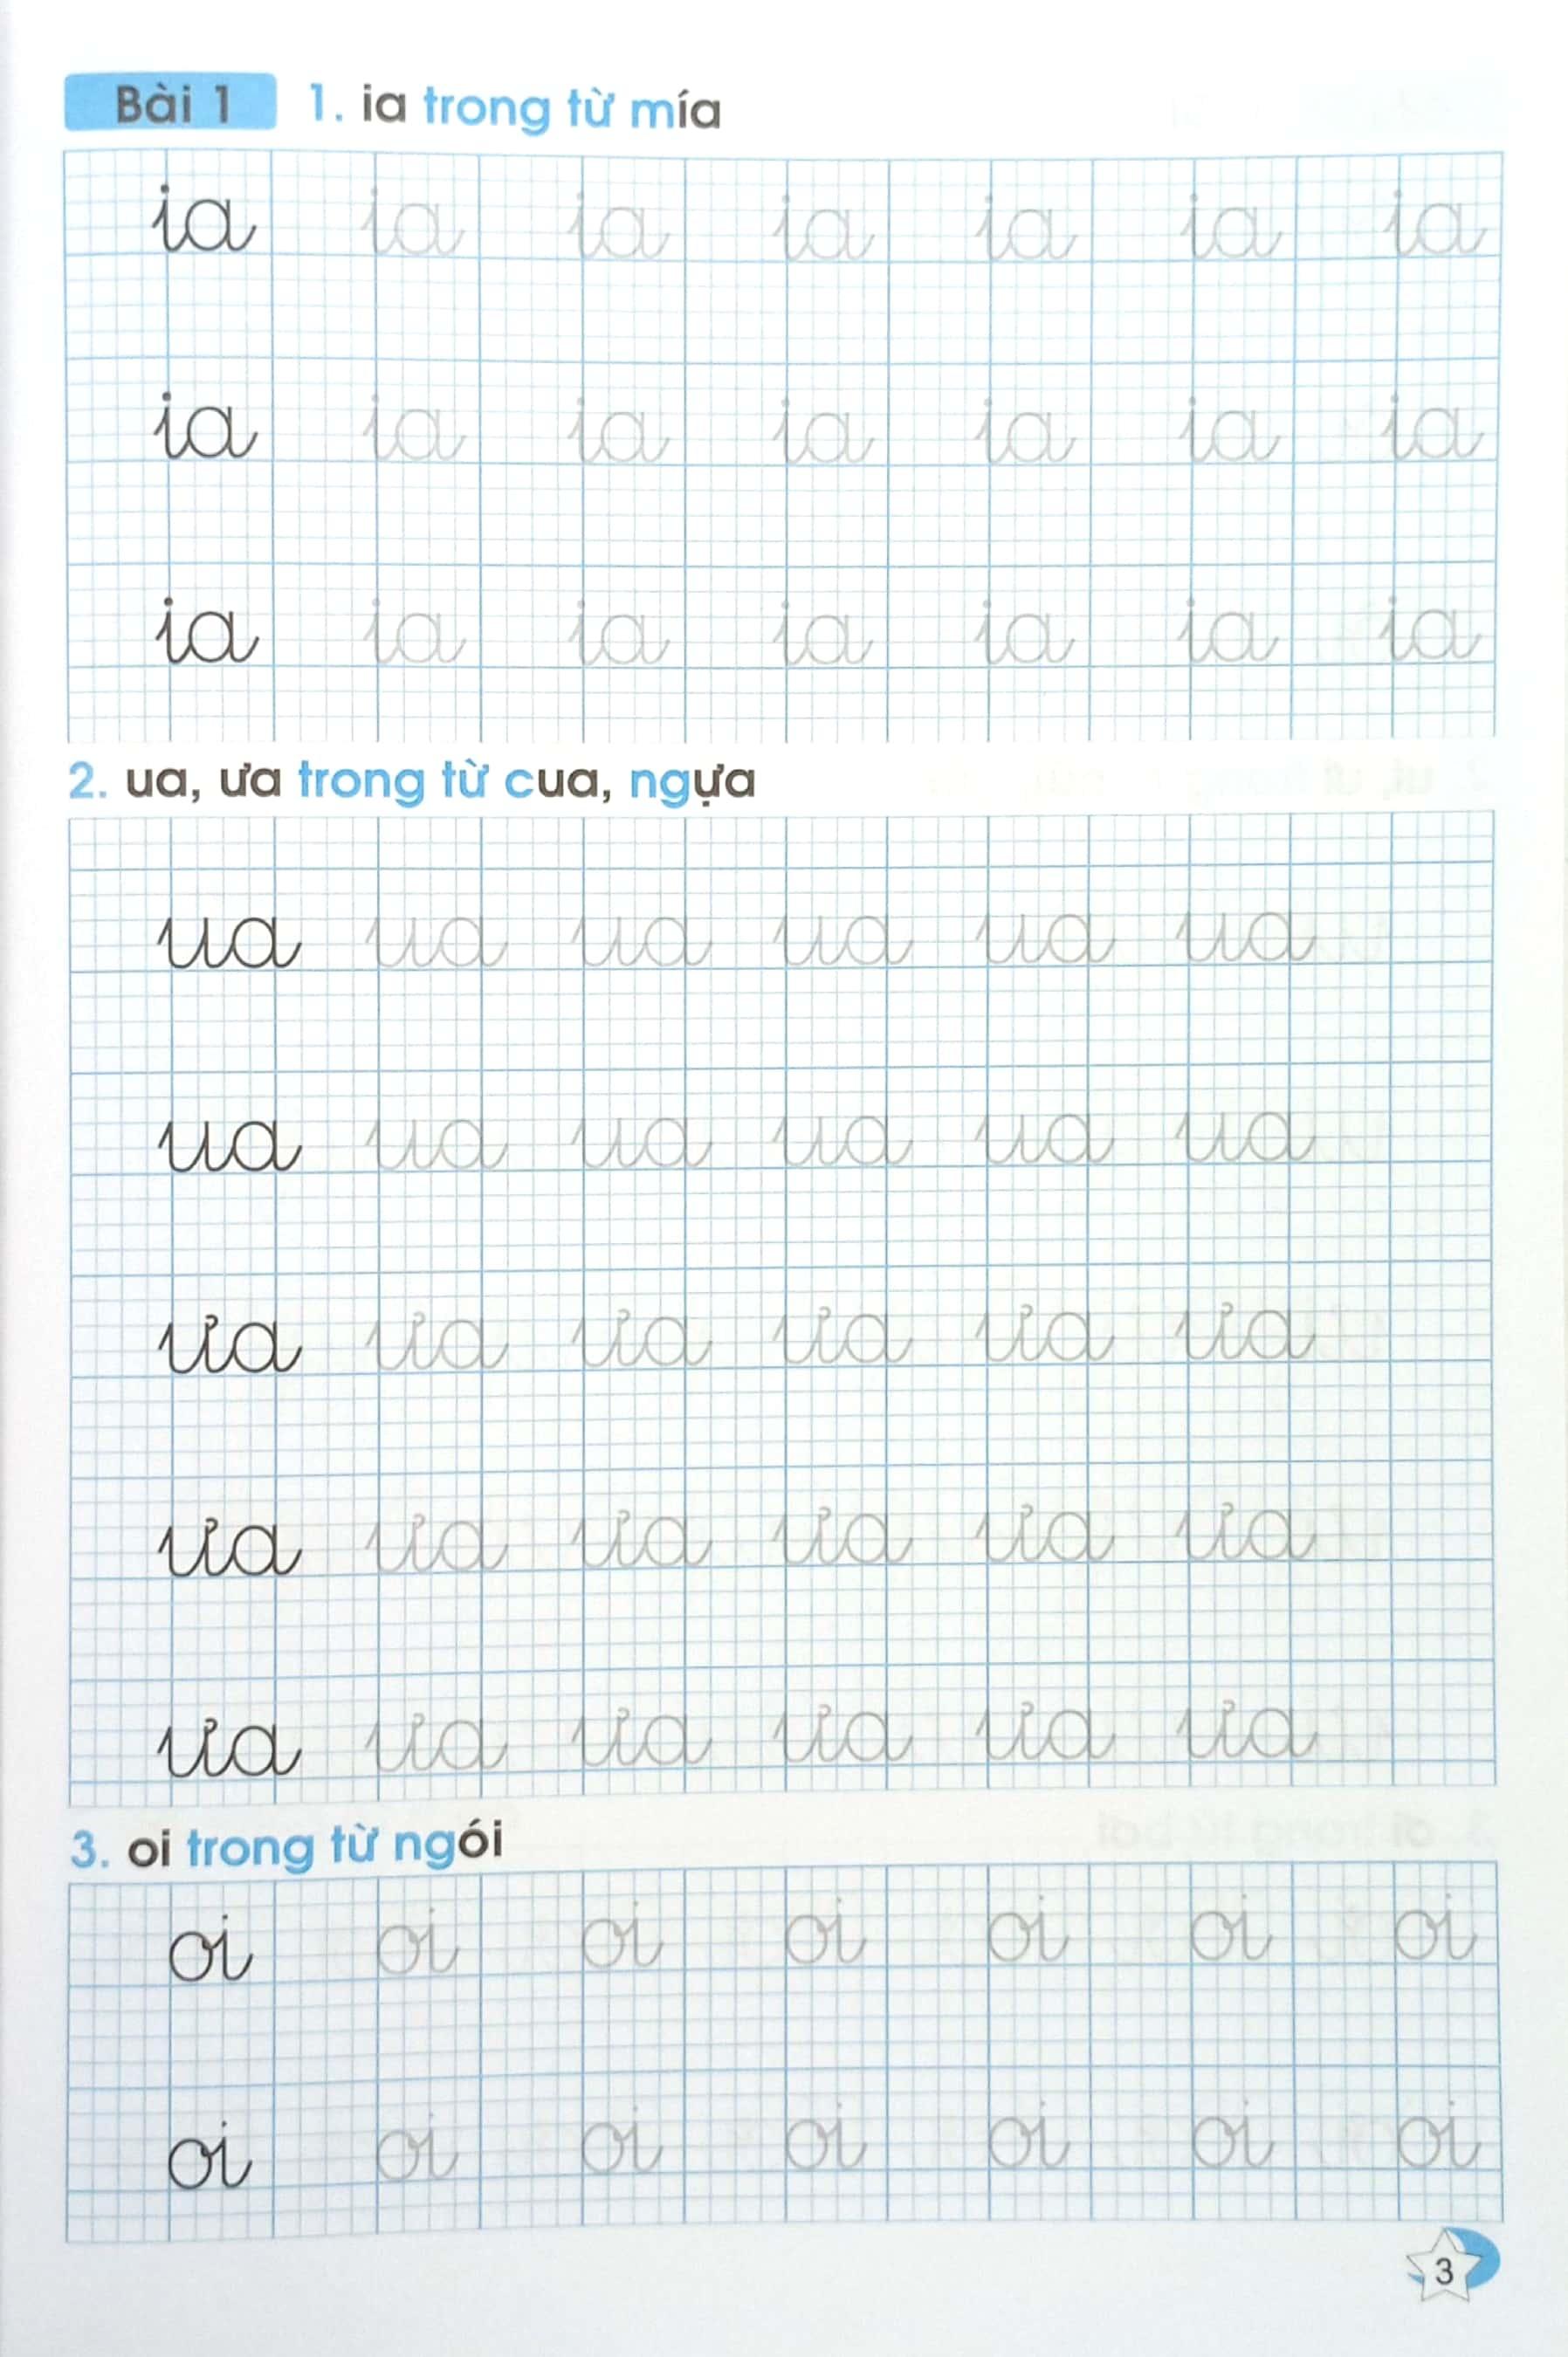 Bài 1 1. ia trong từ mía
ia ia ia ia ia ia ia
ia ia ia ia ia ia ia
ia ia ia ia ia ia ia
2. ua, ưa trong từ cua, ngựa
ua ua ua ua ua ua
ua ua ua ua ua ua
ưa ưa ưa ưa ưa ưa
ưa ưa ưa ưa ưa ưa
ưa ưa ưa ưa ưa ưa
3. oi trong từ ngói
oi oi oi oi oi oi oi
oi oi oi oi oi oi oi
3